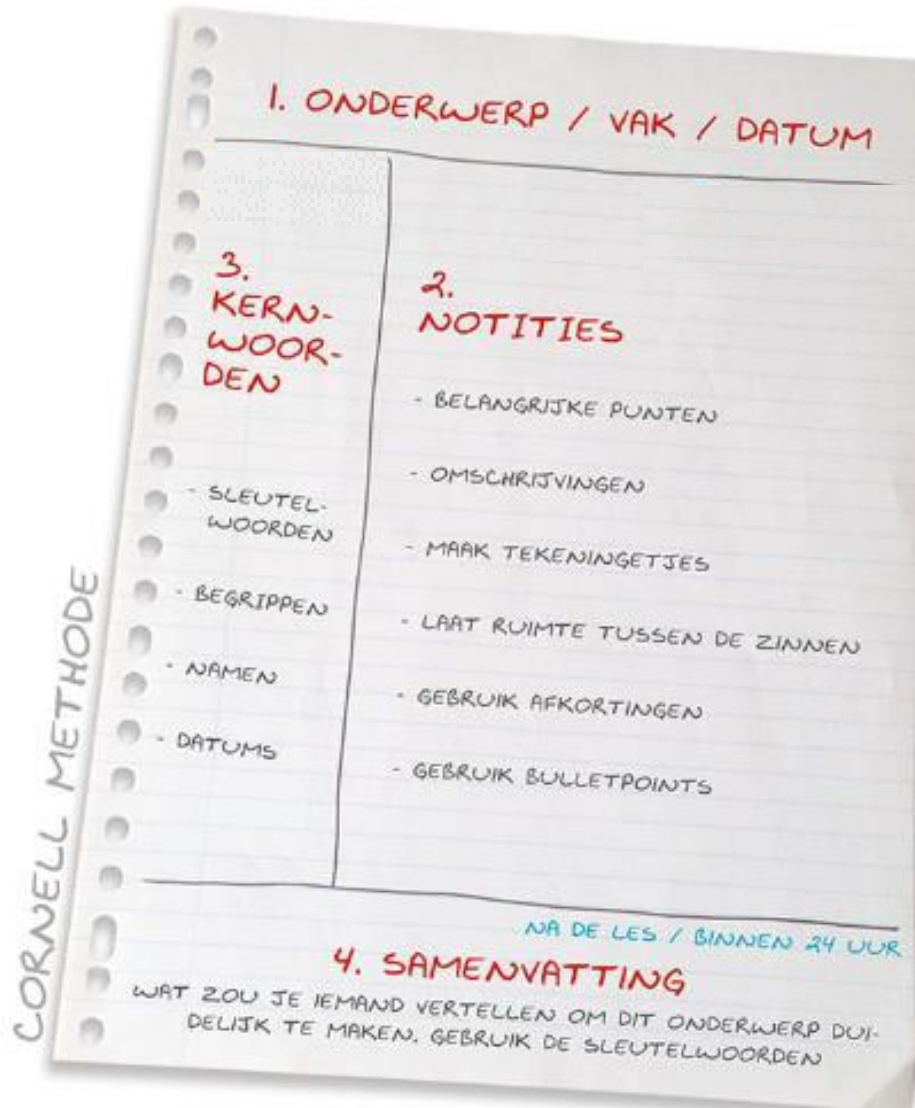 1. ONDERWERP / VAK / DATUM
3.
KERN-
WOOR-
DEN
- SLEUTEL-
WOORDEN
- BEGRIPPEN
- NAMEN
- DATUMS
2.
NOTITIES
- BELANGRIJKE PUNTEN
- OMSCHRIJVINGEN
- MAAK TEKENINGETJES
- LAAT RUIMTE TUSSEN DE ZINNEN
- GEBRUIK AFKORTINGEN
- GEBRUIK BULLETPOINTS
NA DE LES / BINNEN 24 UUR
4. SAMENVATTING
WAT ZOU JE IEMAND VERTELLEN OM DIT ONDERWERP DUI-
DELIJK TE MAKEN. GEBRUIK DE SLEUTELWOORDEN
CORNELL METHODE